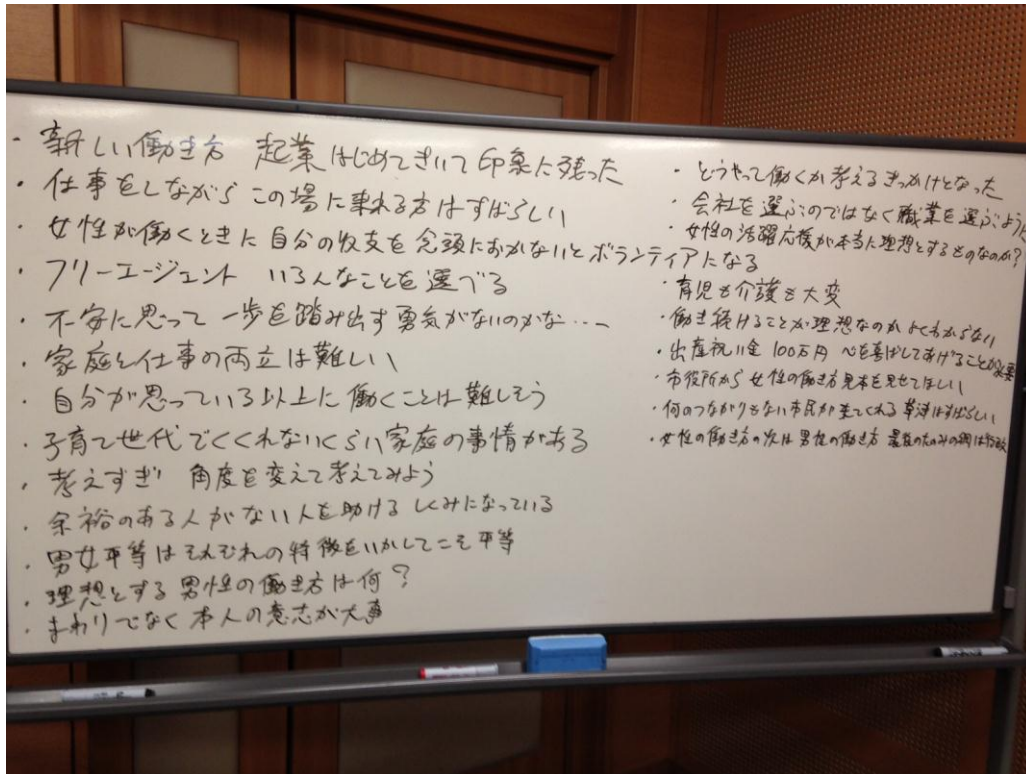 ・新しい働き方 起業 はじめてきいて印象に残った
・仕事をしながら この場に来れる方はすばらしい
・女性が働くときに自分の収支を念頭におかないとボランティアになる
・フリーエージェント いろんなことを選べる
・不安に思って一歩を踏み出す勇気がないのかな…
・家庭と仕事の両立は難しい
・自分が思っている以上に働くことは難しそう
・子育て世代でくくれないくらい家庭の事情がある
・考えすぎ 角度を変えて考えてみよう
・余裕のある人がない人を助けるしくみになっている
・男女平等はそれぞれの特徴をいかしてこそ平等
・理想とする男性の働き方は何?
・まわりでなく本人の意志が大事
・どうやって働くか考えるきっかけとなった
・会社を選ぶのではなく職業を選ぶように
・女性の活躍応援が本当に理想とするものなのか?
・育児も介護も大変
・働き続けることが理想なのかよくわからない
・出産祝い金 100万円 心を喜ばしてあげることが必要
・市役所から女性の働き方見本を見せてほしい
・何のつながりもない市民が来てくれる草津はすばらしい
・女性の働き方の次は男性の働き方 最後のたのみの綱は行政